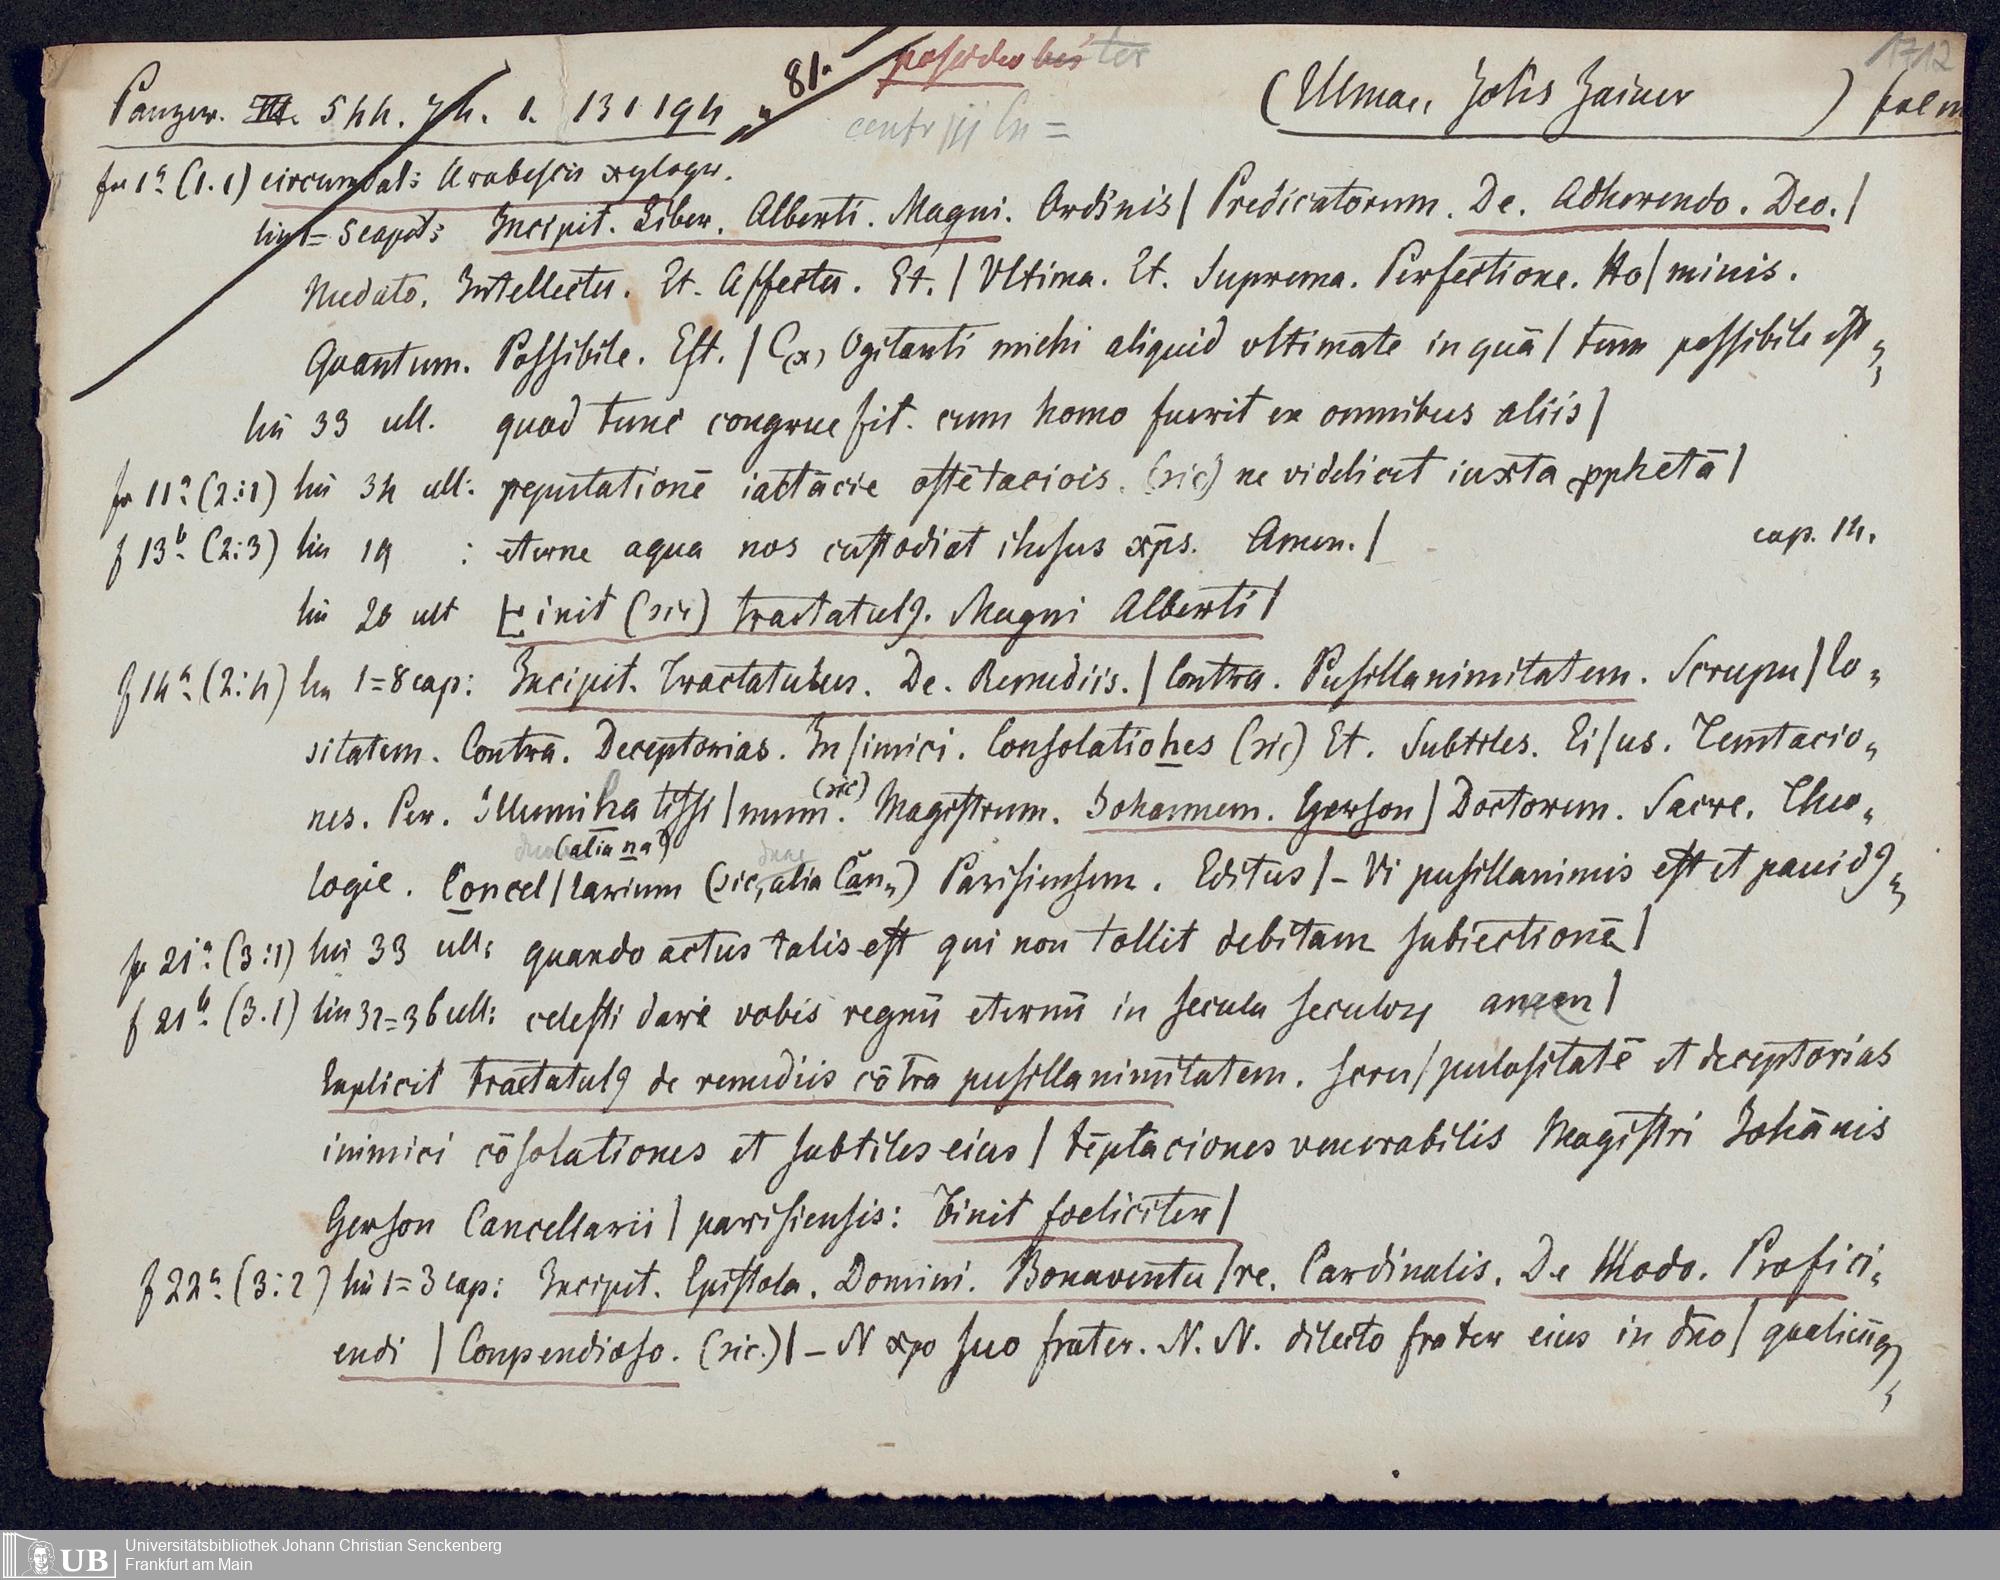 1712
Panzer. III. 544. 74. 1. 131 194 „ 81. possideo bis ter (Ulmae, Johs Zainer ) fol m
f 1ª (1.1) circumdat: Arabescis xylogr.
lin 1= 5 capit: Incipit. Liber. Alberti. Magni. Ordinis | Predicatorum. De. Adherendo. Deo. |
Nudato. Intellectu. Et. Affectu. Et. | Vltima. Et. Suprema. Perfectione. Ho | minis.
Quantum. Possibile. Est. | C(x, Ogitanti michi aliquid vltimate in quā | tum possibile est„
lin 33 ult. quod tunc congrue fit. cum homo fuerit ex omnibus aliis |
f 11ª (2:1) lin 34 ult: reputationē iactācie ostētaciois. (sic) ne videlicet iuxta pphetā |
f 13b (2:3) lin 19 : eterne aqua nos custodiat ihesus xps. Amen. | cap. 14.
lin 20 ult Finit (sic) tractatul9. Magni Alberti |
f 14ª (2:4) lin 1=8 cap: Incipit. Tractatulus. De. Remediis. | Contra. Pusillanimitatem. Scrupu | lo„
sitatem. Contra. Deceptorias. In | imici. Consolationes (sic) Et. Subtiles. Ei | us. Temtacio„
nes. Per. Illuminatissi | mum. (sic) Magistrum. Johannem. Gerson | Doctorem. Sacre. Theo„
(alia na)
logie. Concel | larium (sic, alia Can„) Parisiensem. Editus | – Vi pusillanimis est et pauid9„
f 21ª (3:1) lin 33 ult: quando actus talis est qui non tollit debitam subiectionē |
f 21b (3.1) lin 32=36 ult: celesti dare vobis regnū eternū in secula seculoꝝ amen |
Explicit tractatul9 de remediis cōtra pusillanimitatem. scru | pulositatē et deceptorias
inimici cōsolationes et subtiles eius | tēptaciones venerabilis Magistri Johānis
Gerson Cancellarii | parisiensis: Finit foeliciter |
f 22ª (3:2) lin 1=3 cap: Incipit. Epistola. Domini. Bonaventu | re. Cardinalis. De Modo. Profici„
endi | Conpendioso. (sic.) | – N xpo suo frater. N. N. dilecto frater eius in dno | qualicūq3„
Universitätsbibliothek Johann Christian Senckenberg
UB Frankfurt am Main